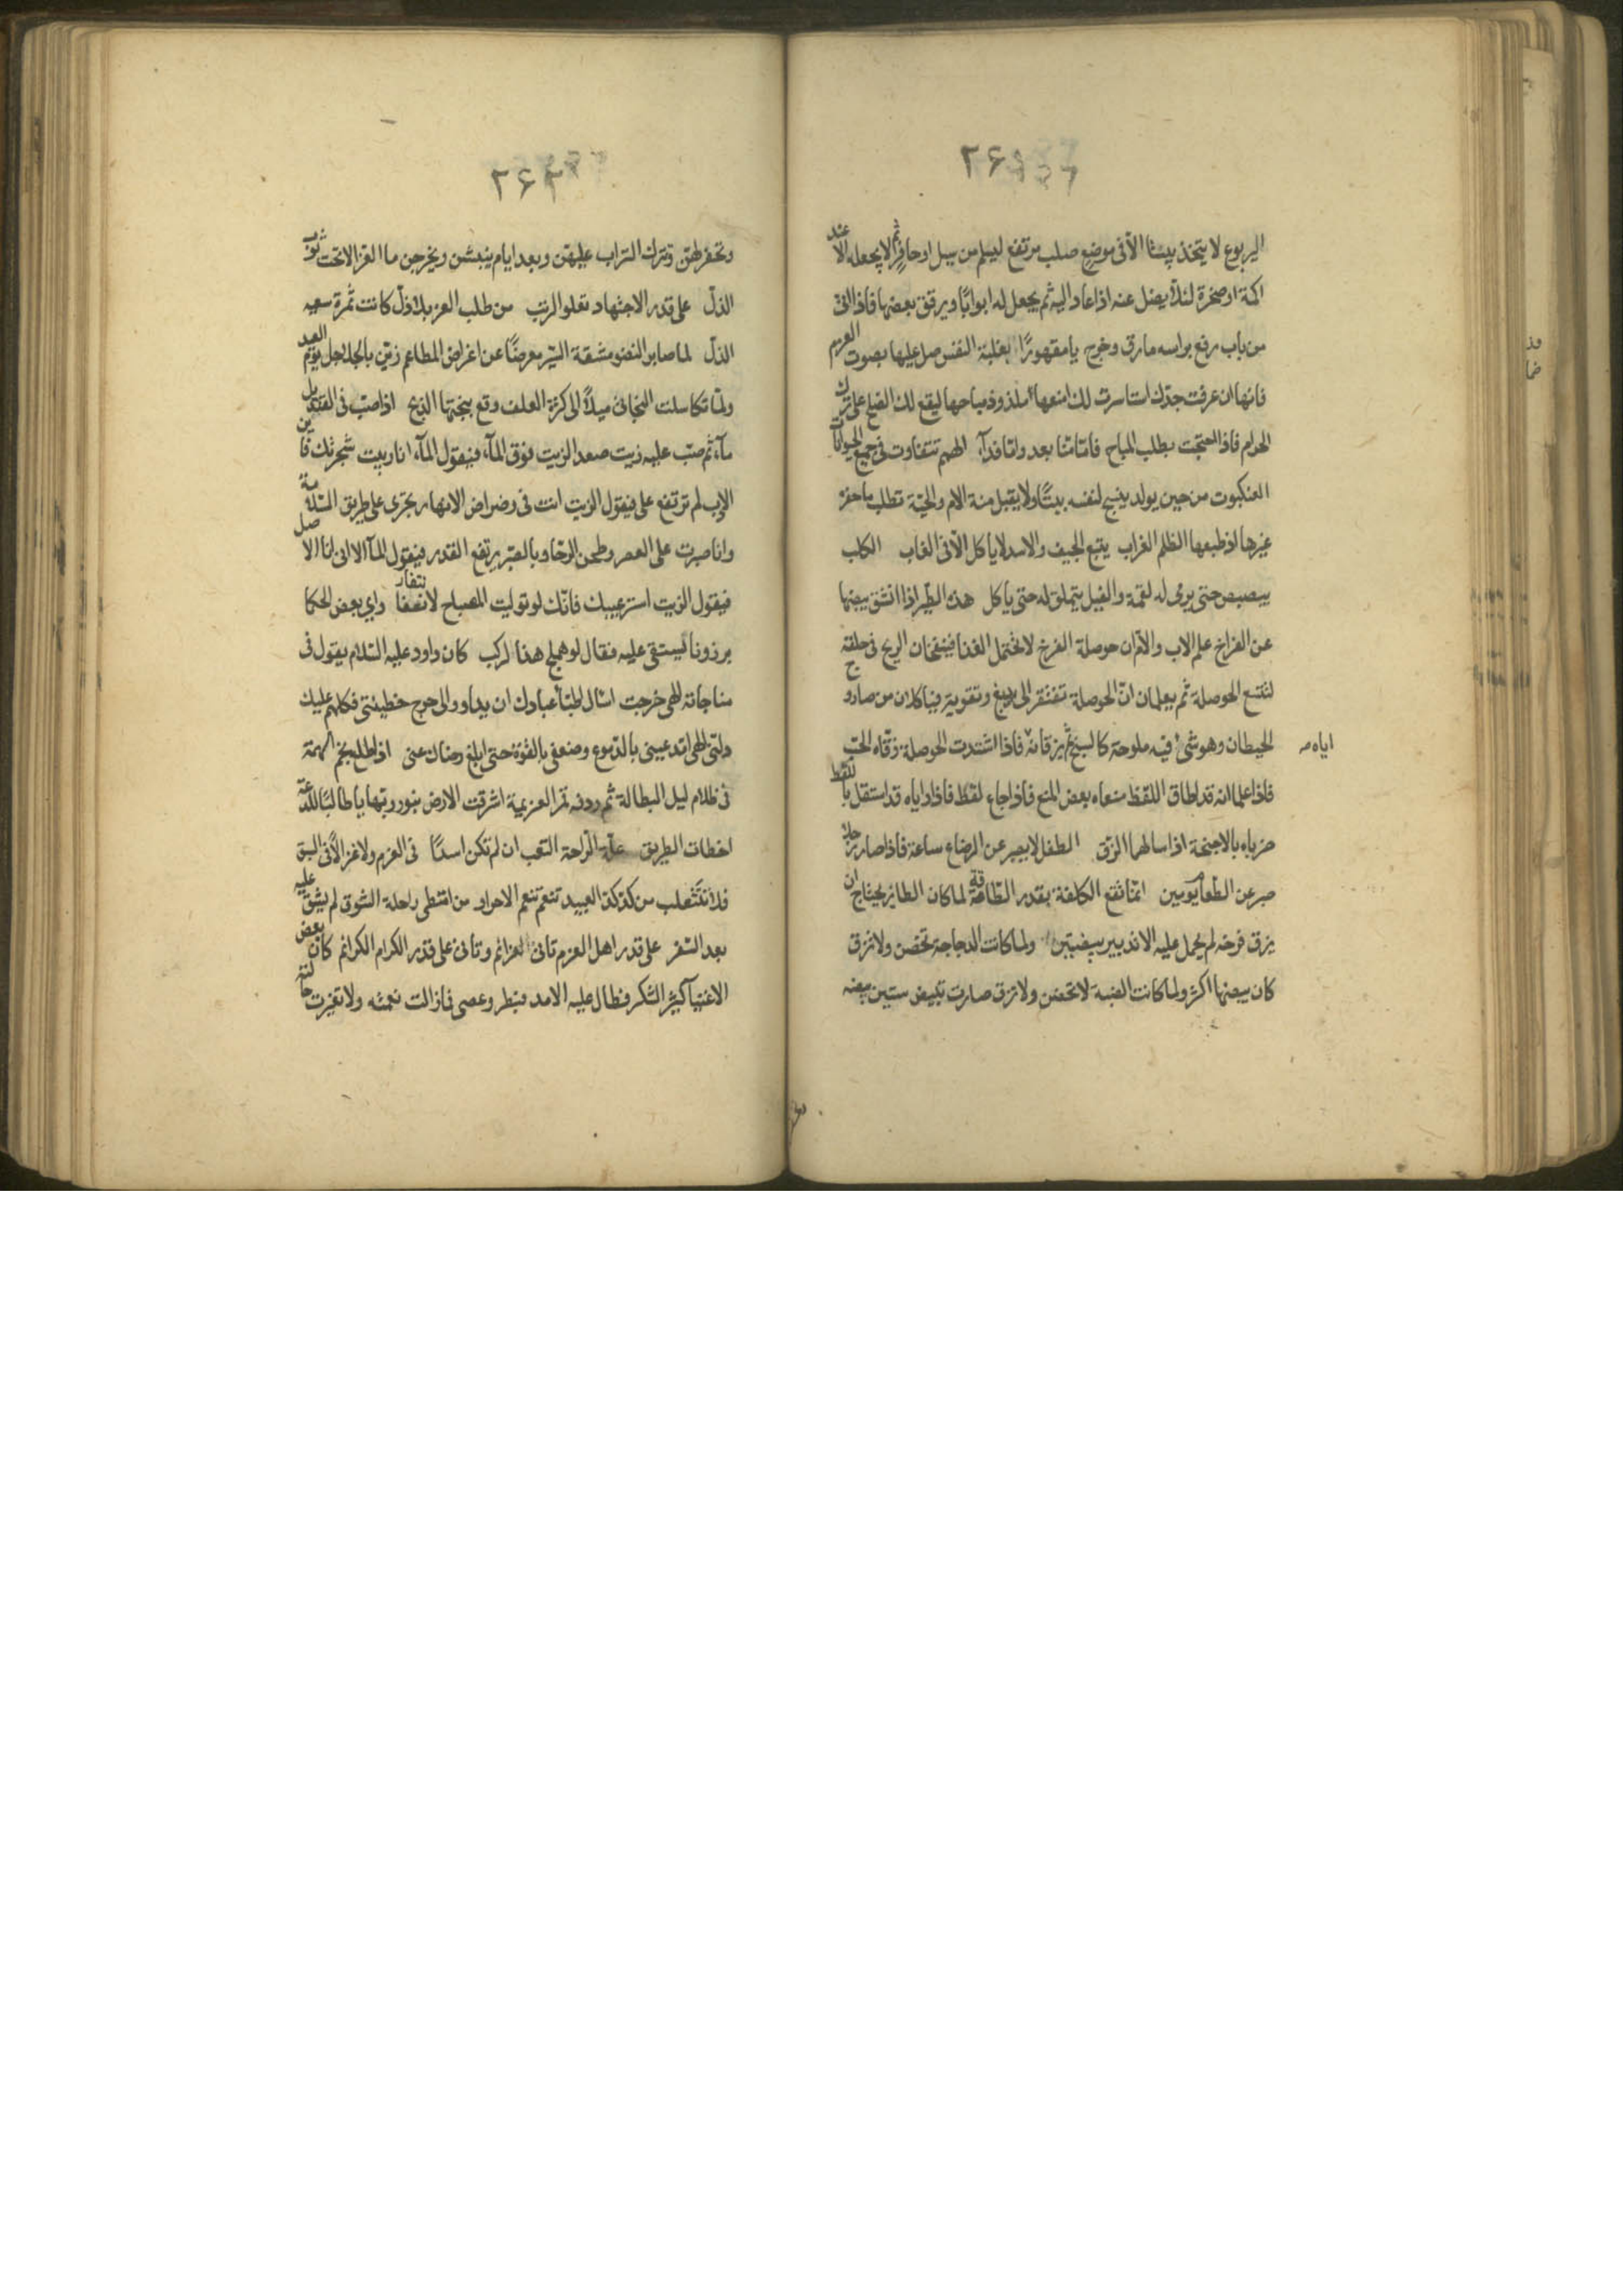 ۲۶۱
اليربوع لا يتخذ بيتا الا فى موضع صلب مرتفع ليسلم من سيل او حافر ثم لا يجعله الا عند
اكمة او صخرة لئلا يضل عنه اذا عاد اليه ثم يجعل له ابوابا ويرقق بعضها فاذا اتى
من باب رفع براسه مارق وخرج يا مقهورا بغلبة النفس صل عليها بصوت العزم
فانها ان عرفت جدك استاسرت لك امنعها ملذوذ مباحها ليقع لك الصلح على ترك
الحرام فاذا احتجت بطلب المباح فاما منا بعد واما فدآء الهمم تتفاوت فى جميع الحيوانات
العنكبوت من حين يولد ينسج لنفسه بيتا ولا يقبل منة الام والحية تطلب ما حفره
غيرها اذ طبعها الظلم الغراب يتبع الجيف والاسد لا ياكل الا فى الغاب الكلب
يبصبص حتى يرمى له لقمة والفيل يتملق له حتى ياكل هذه الطير اذا انشق بيضها
عن الفراخ علم الاب والام ان حوصلة الفرخ لا تحتمل الغذا فينفخان الريح فى حلقه
لتتسع الحوصلة ثم يعلمان ان الحوصلة تفتقر الى دبغ وتقوية فياكلان من صاروج
الحيطان وهو شئ فيه ملوحة كالسبخ ثم يزقانه فاذا اشتدت الحوصلة زقاه الحب
اياه
فاذا علما انه قد اطاق اللقط منعاه بعض المنع فاذا جاع لقط فاذا راياه قد استقل باللقط
ضرباه بالاجنحة اذا سالهما الزق الطفل لا يصبر عن الرضاع ساعة فاذا صار رجلا
صبر عن الطعام يومين انما تقع الكلفة بقدر الطاقة لما كان الطائر يحتاج ان
يزق فرخه لم يحمل عليه الا تدبير بيضتين ولما كانت الدجاجة تحضن ولا تزق
كان بيضها اكثر ولما كانت الضبة لا تحضن ولا تزق صارت تبيض ستين بيضه
۲۶۲
وتحفر لهن وتترك التراب عليهن وبعد ايام ينبشن ويخرجن ما العز الا تحت ثوب
الذل على قدر الاجتهاد تعلو الرتب من طلب العز بلا ذل كانت ثمرة سعيه
الذل لما صابر النضو مشقة السير معرضا عن اغراض المطاعم زين بالجلاجل يوم العيد
ولما تكاسلت البخاتى ميلا الى كثرة العلف وقع ببختها الذبح اذا صب فى القنديل
مآء ثم صب عليه زيت صعد الزيت فوق المآء فيقول المآء انا ربيت شجرتك فاين
الادب لم ترتفع على فيقول الزيت انت فى رضراض الانهار تجرى على طريق السلامة
وانا صبرت على العصر وطحن الرحا وبالصبر يرتفع القدر فيقول المآ الا انى انا الاصل
فيقول الزيت استر عيبك فانك لو توليت المصباح لانطفا راى بعض الحكما
برذونا يستقى عليه فقال لو هملج هذا لركب كان داود عليه السلام يقول فى
مناجاته الهى خرجت اسال اطباء عبادك ان يداووا لى جرح خطيئتى فكلهم عليك
دلنى الهى امدد عينى بالدموع وضعفى بالقوة حتى ابلغ رضاك عنى اذا طلع نجم الهمة
فى ظلام ليل البطالة ثم ردفه قمر العزيمة اشرقت الارض بنور ربها يا طالبا للدعة
اخطات الطريق علة الراحة التعب ان لم تكن اسدا فى العزم ولا غزالا فى السبق
فلا تتثعلب من كد كد العبيد تنعم تنعم الاحرار من امتطى راحلة الشوق لم يشق عليه
بعد السفر على قدر اهل العزم تاتى العزائم وتاتى على قدر الكرام الكرائم كان بعض
الاغنيا كثير الشكر فطال عليه الامد فبطر وعصى فما زالت نعمته ولا تغيرت حالته